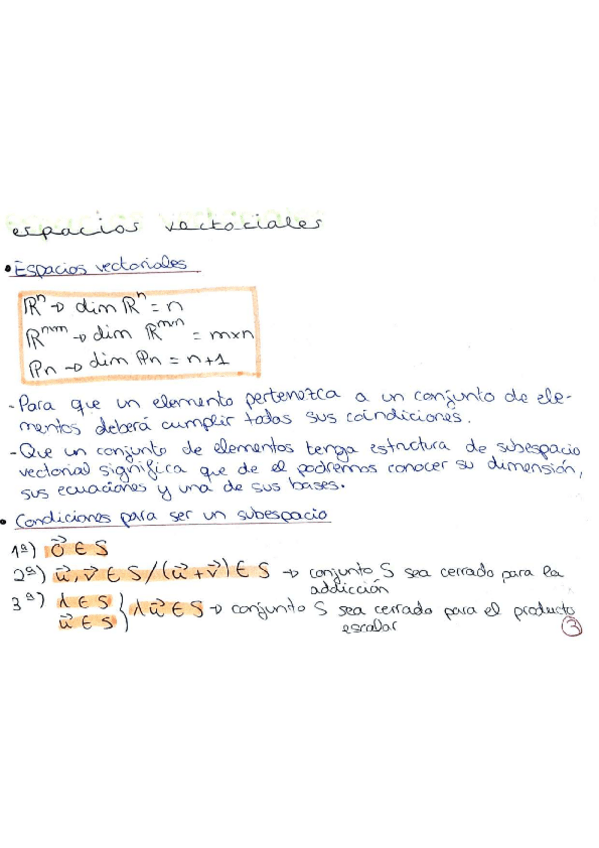 espacios vectoriales
• Espacios vectoriales
ℝⁿ → dim ℝⁿ = n
ℝᵐˣⁿ → dim ℝᵐˣⁿ = m×n
ℙn → dim ℙn = n+1
- Para que un elemento pertenezca a un conjunto de ele-
mentos deberá cumplir todas sus coindiciones.
- Que un conjunto de elementos tenga estructura de subespacio
vectorial significa que de el podremos conocer su dimensión,
sus ecuaciones y una de sus bases.
• Condiciones para ser un subespacio
1ª) 0⃗ ∈ S
2ª) u⃗, v⃗ ∈ S / (u⃗ + v⃗) ∈ S → conjunto S sea cerrado para la
addicción
3ª) λ ∈ S
u⃗ ∈ S } λu⃗ ∈ S → conjunto S sea cerrado para el producto
escalar
3